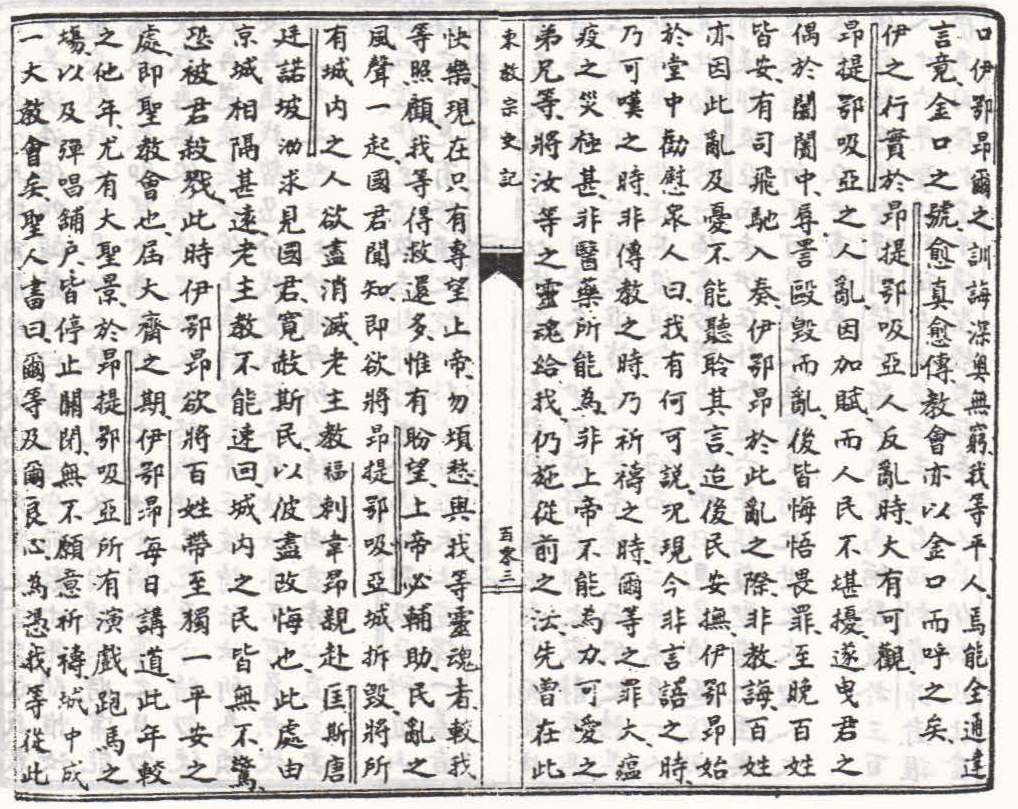 口伊鄂昂爾之訓誨深奥無窮我等平人焉能全通達
言竟金口之號愈真愈傳教會亦以金口而呼之矣
伊之行實於昂提鄂吸亞人反亂時大有可觀
昂提鄂吸亞之人亂因加賦而人民不堪擾遂曳君之
偶於闤闠中辱詈毆毀而亂後皆悔悟畏罪至晚百姓
皆安有司飛馳入奏伊鄂昂於此亂之際非教誨百姓
亦因此亂及憂不能聽聆其言迨後民安撫伊鄂昂始
於堂中勸慰眾人曰我有何可説况現今非言語之時
乃可嘆之時非傳教之時乃祈禱之時爾等之罪大瘟
疫之災極甚非醫藥所能為非上帝不能為力可愛之
弟兄等將汝等之靈魂給我仍施從前之法先曾在此
東教宗史記
百零三
快樂現在只有專望上帝勿項愁與我等靈魂者較我
等照顧我等得救還多惟有盼望上帝必輔助民亂之
風聲一起國君聞知即欲將昂提鄂吸亞城拆毀將所
有城内之人欲盡消滅老主教福剌韋昂親赴匡斯唐
廷諾坡泐求見國君寬赦斯民以彼盡改悔也此處由
京城相隔甚遠老主教不能速回城内之民皆無不驚
恐被君殺戮此時伊鄂昂欲將百姓帶至獨一平安之
處即聖教會也屆大齋之期伊鄂昂每日講道此年較
之他年尤有大聖景於昂提鄂吸亞所有演戲跑馬之
場以及彈唱舖户皆停止關閉無不願意祈禱城中成
一大教會矣聖人書曰爾等及爾良心為憑我等從此